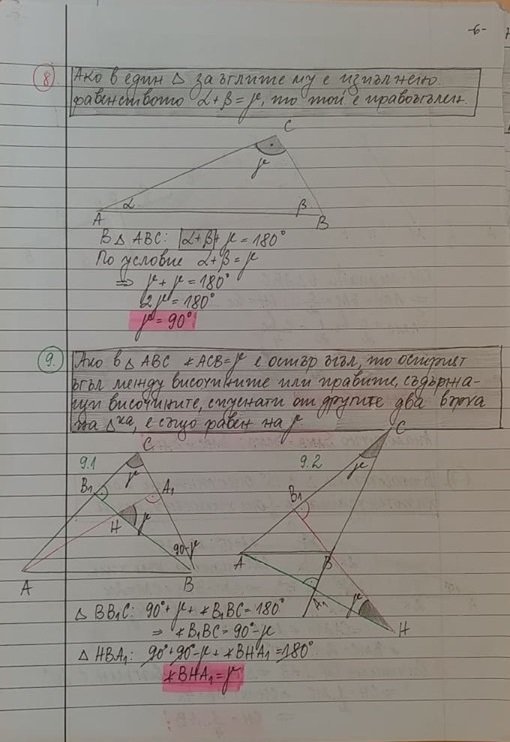 -6-
8 Ако в един △ за ъглите му е изпълнено
равенството α+β=γ, то той е правоъгълен.
C
γ
A α β B
В △ ABC: α+β+γ=180°
По условие α+β=γ
⇒ γ+γ=180°
2γ=180°
γ=90°
9. Ако в △ ABC ∢ACB=γ е остър ъгъл, то острият
ъгъл между височините или правите, съдържа-
щи височините, спуснати от другите два върха
на △ка, е също равен на γ
9.1 C γ
B₁ A₁
H γ
90-γ
A B
9.2 C
γ
B₁
A B
A₁ γ
H
△ BB₁C: 90°+γ+∢B₁BC=180°
⇒ ∢B₁BC=90°-γ
△ HBA₁: 90°+90°-γ+∢BHA₁=180°
∢BHA₁=γ